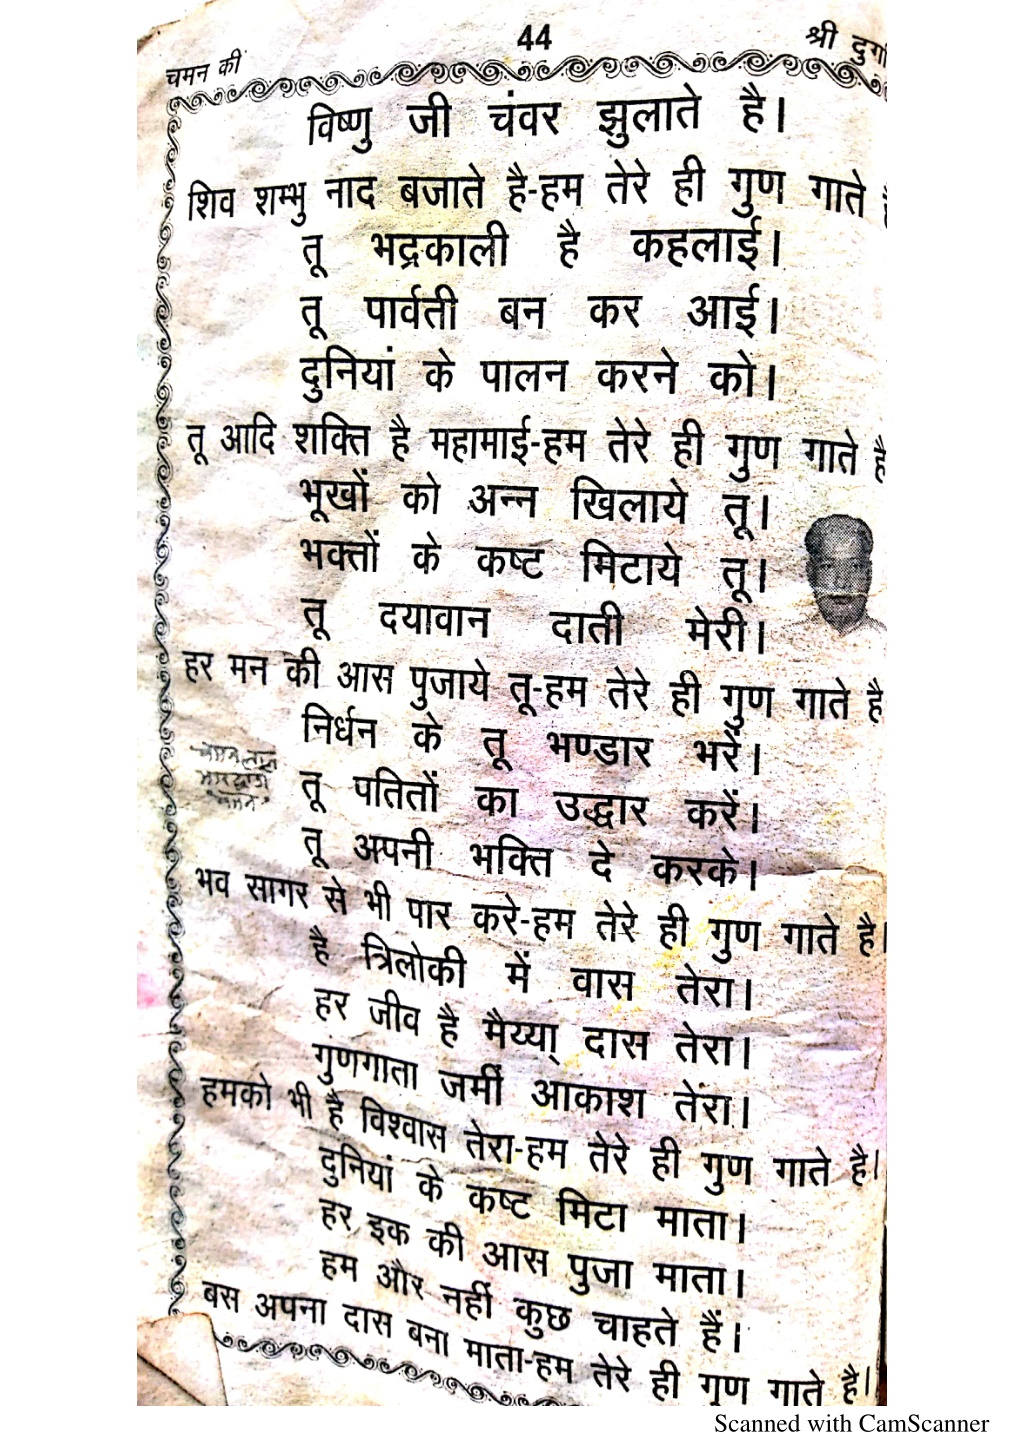 चमन की
44
श्री दुर्गा
विष्णु जी चंवर झुलाते है।
शिव शम्भु नाद बजाते है-हम तेरे ही गुण गाते
तू भद्रकाली है कहलाई।
तू पार्वती बन कर आई।
दुनियां के पालन करने को।
तू आदि शक्ति है महामाई-हम तेरे ही गुण गाते है
भूखों को अन्न खिलाये तू।
भक्तों के कष्ट मिटाये तू।
तू दयावान दाती मेरी।
हर मन की आस पुजाये तू-हम तेरे ही गुण गाते है
निर्धन के तू भण्डार भरें।
तू पतितों का उद्धार करें।
तू अपनी भक्ति दे करके।
भव सागर से भी पार करे-हम तेरे ही गुण गाते है।
है त्रिलोकी में वास तेरा।
हर जीव है मैय्या दास तेरा।
गुणगाता जमीं आकाश तेरा।
हमको भी है विश्वास तेरा-हम तेरे ही गुण गाते है।
दुनियां के कष्ट मिटा माता।
हर इक की आस पुजा माता।
हम और नहीं कुछ चाहते हैं।
बस अपना दास बना माता-हम तेरे ही गुण गाते है।
Scanned with CamScanner